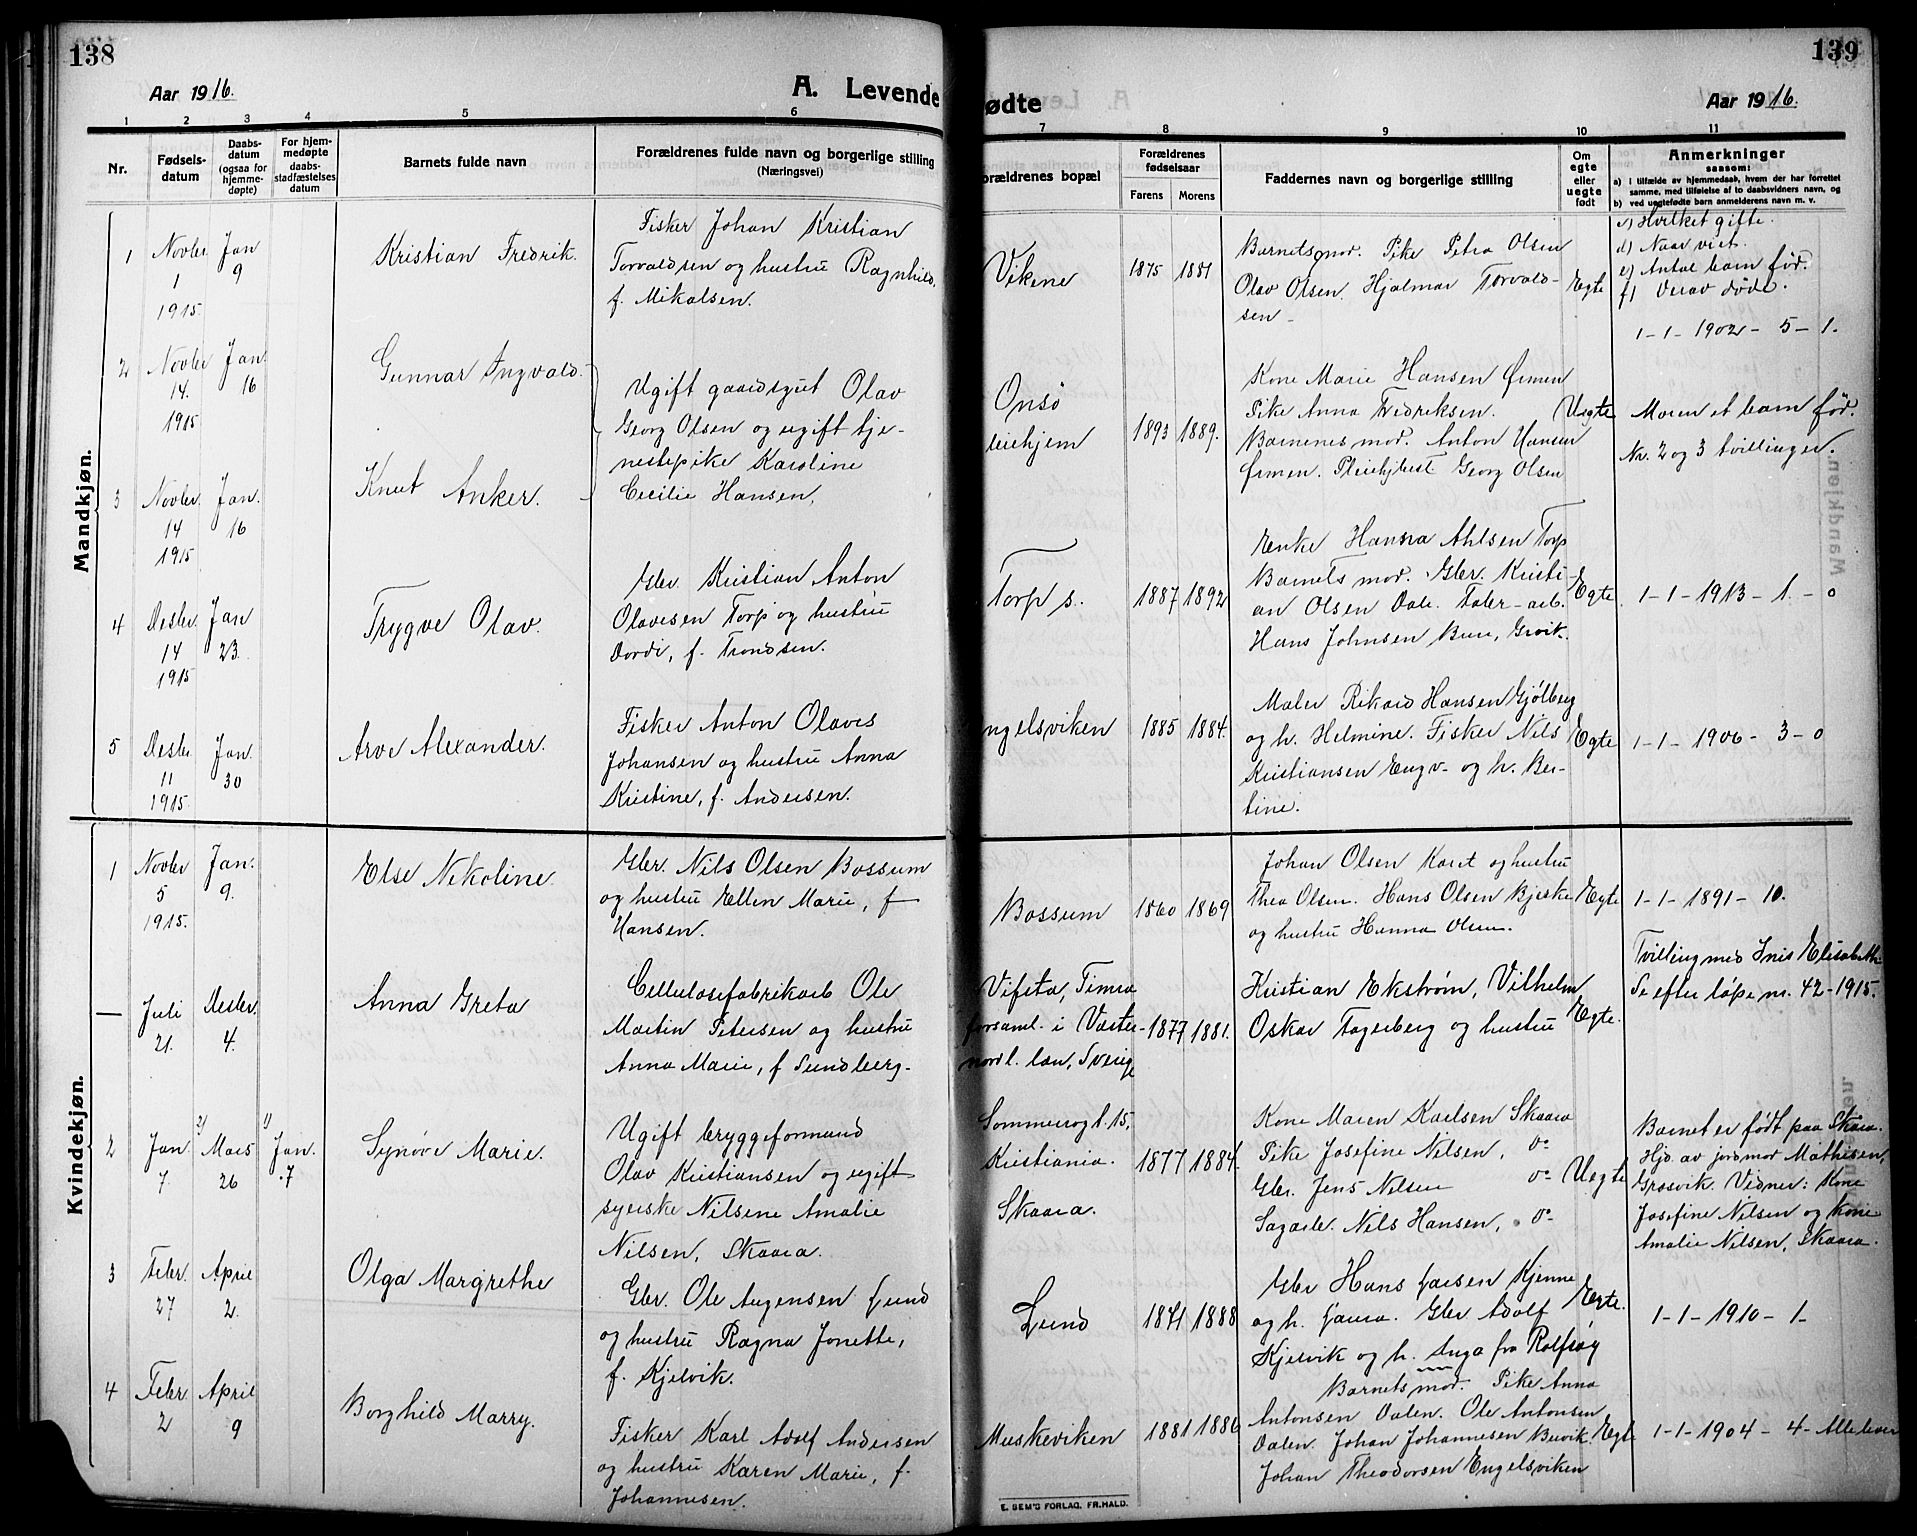 138
Aar 1916.
A. Levende
1 2 3 4 5 6
Nr.
Fødsels-
datum
Daabs-
datum
(ogsaa for
hjemme-
døpte)
For hjem-
medøpte
daabs-
stadfæstelses
datum
Barnets fulde navn
Forældrenes fulde navn og borgerlige stilling
(Næringsvei)
Mandkjøn.
1 Novbr. 1 1915 Jan 9 Kristian Fredrik.
Fisker Johan Kristian
Torvaldsen og hustru Ragnhild,
f. Mikalsen.
2 Novbr 14. 1915 Jan. 16 Gunnar Ingvald.
Ugift gaardsgut Olav
Georg Olsen og ugift tje-
nestepike Karoline
Cecilie Hansen,
3 Novbr. 14 1915 Jan. 16 Knut Anker.
4 Desbr. 14 1915 Jan 23. Trygve Olav.
Gbr. Kristian Anton
Olavesen Torp og hustru
Dordi, f. Trondsen.
5 Desbr. 11 1915 Jan. 30 Arve Alexander.
Fisker Anton Olaves
Johansen og hustru Anna
Kristine, f. Andersen.
Kvindekjøn.
1 Novbr 5 1915. Jan. 9. Else Nikoline.
Gbr. Nils Olsen Bossum
og hustru Ellen Marie, f
Hansen.
— Juli 21. Desbr. 4. Anna Greta
Cellulosefabrikarb Ole
Martin Petersen og hustru
Anna Marie, f Sundberg.
2 Jan 7. 2) Mars 26 1) Jan. 7 Synøve Marie.
Ugift bryggeformand
Olav Kristiansen og ugift
syerske Nilsine Amalie
Nilsen, Skaara.
3 Febr. 27 April 2. Olga Margrethe
Gbr. Ole Augensen Lund
og hustru Ragna Jonette,
f. Kjelvik.
4 Febr. 2 April 9 Borghild Marry.
Fisker Karl Adolf Andersen
og hustru Karen Marie, f.
Johannesen.
139
ødte
Aar 1916.
7 8 9 10 11
orældrenes bopæl
Forældrenes
fødselsaar
Farens Morens
Faddernes navn og borgerlige stilling
Om
egte
eller
uegte
født
Anmerkninger
saasom:
a) i tilfælde av hjemmedaab, hvem der har forrettet
samme, med tilføielse af to daabsvidners navn, og
b) ved uegtefødte barn anmelderens navn m. v.
c) Hvilket gifte.
d) Naar viet.
e) Antal barn fød.
f) Derav døde.
Vikene 1875 1881
Barnets mor. Pike Petra Olsen
Olav Olsen. Hjalmar Torvald-
sen
Egte
1-1- 1902- 5- 1.
Onsø
leiehjem 1893 1889.
Kone Marie Hansen Ørmen
Pike Anna Fredriksen.
Barnenes mor. Anton Hansen
Ørmen. Georg Olsen
Uegte
Moren et barn fød.
Nr. 2 og 3 tvillinger.
Torp s. 1887 1892
Enke Hanna Ahlsen Torp
Barnets mor. Gbr. Kristi-
an Olsen Dale. Faber-arb.
Hans Johnsen Bue, Grvik.
Egte
1-1- 1913- 1.- 0
ngelsviken 1885 1884.
Maler Rikard Hansen Gjølberg
og h. Helmine. Fisker Nils
Kristiansen Engv- og h. Ber-
tine.
Egte
1-1- 1906- 3- 0
Bossum 1860 1869
Johan Olsen Karet og hustru
Thea Olsen. Hans Olsen Bjerke
og hustru Hanna Olsen.
Egte
1-1- 1891- 10.
Vifsta, Timra
forsaml. i Vester-
norl. län, Sverige
1877 1881.
Kristian Ekstrøm, Vilhelm
Oskar Fagerberg og hustru
Egte.
Tvilling med Inis Elisabeth
Se efter løpe nr. 42-1915.
Sommerrogt. 15,
Kristiania.
Skaara.
1877 1884.
Kone Maren Karlsen Skaara
Pike Josefine Nilsen, do
Gbr. Jens Nilsen do
Sagarb. Nils Hansen, do
Uegte
Barnet er født paa Skaara.
Hjd. av jordmor Mathisen,
Græsvik. Vidner: Kone
Josefine Nilsen og kone
Amalie Nilsen, Skaara.
Lund 1871 1888
Gbr Hans Larsen Kjenne
og h. Laura. Gbr Adolf
Kjelvik og h. Inga fra Rolfsøy
Egte.
1-1- 1910- 1-
Muskeviken 1881 1886
Barnets mor. Pike Anna
Antonsen Dalen. Ole Antonsen
Dalen. Johan Johannesen Buvik.
Johan Theodorsen Engelsviken
Egte
1-1- 1904- 4- Alle lever
E. SEM'S FORLAG, FR.HALD.